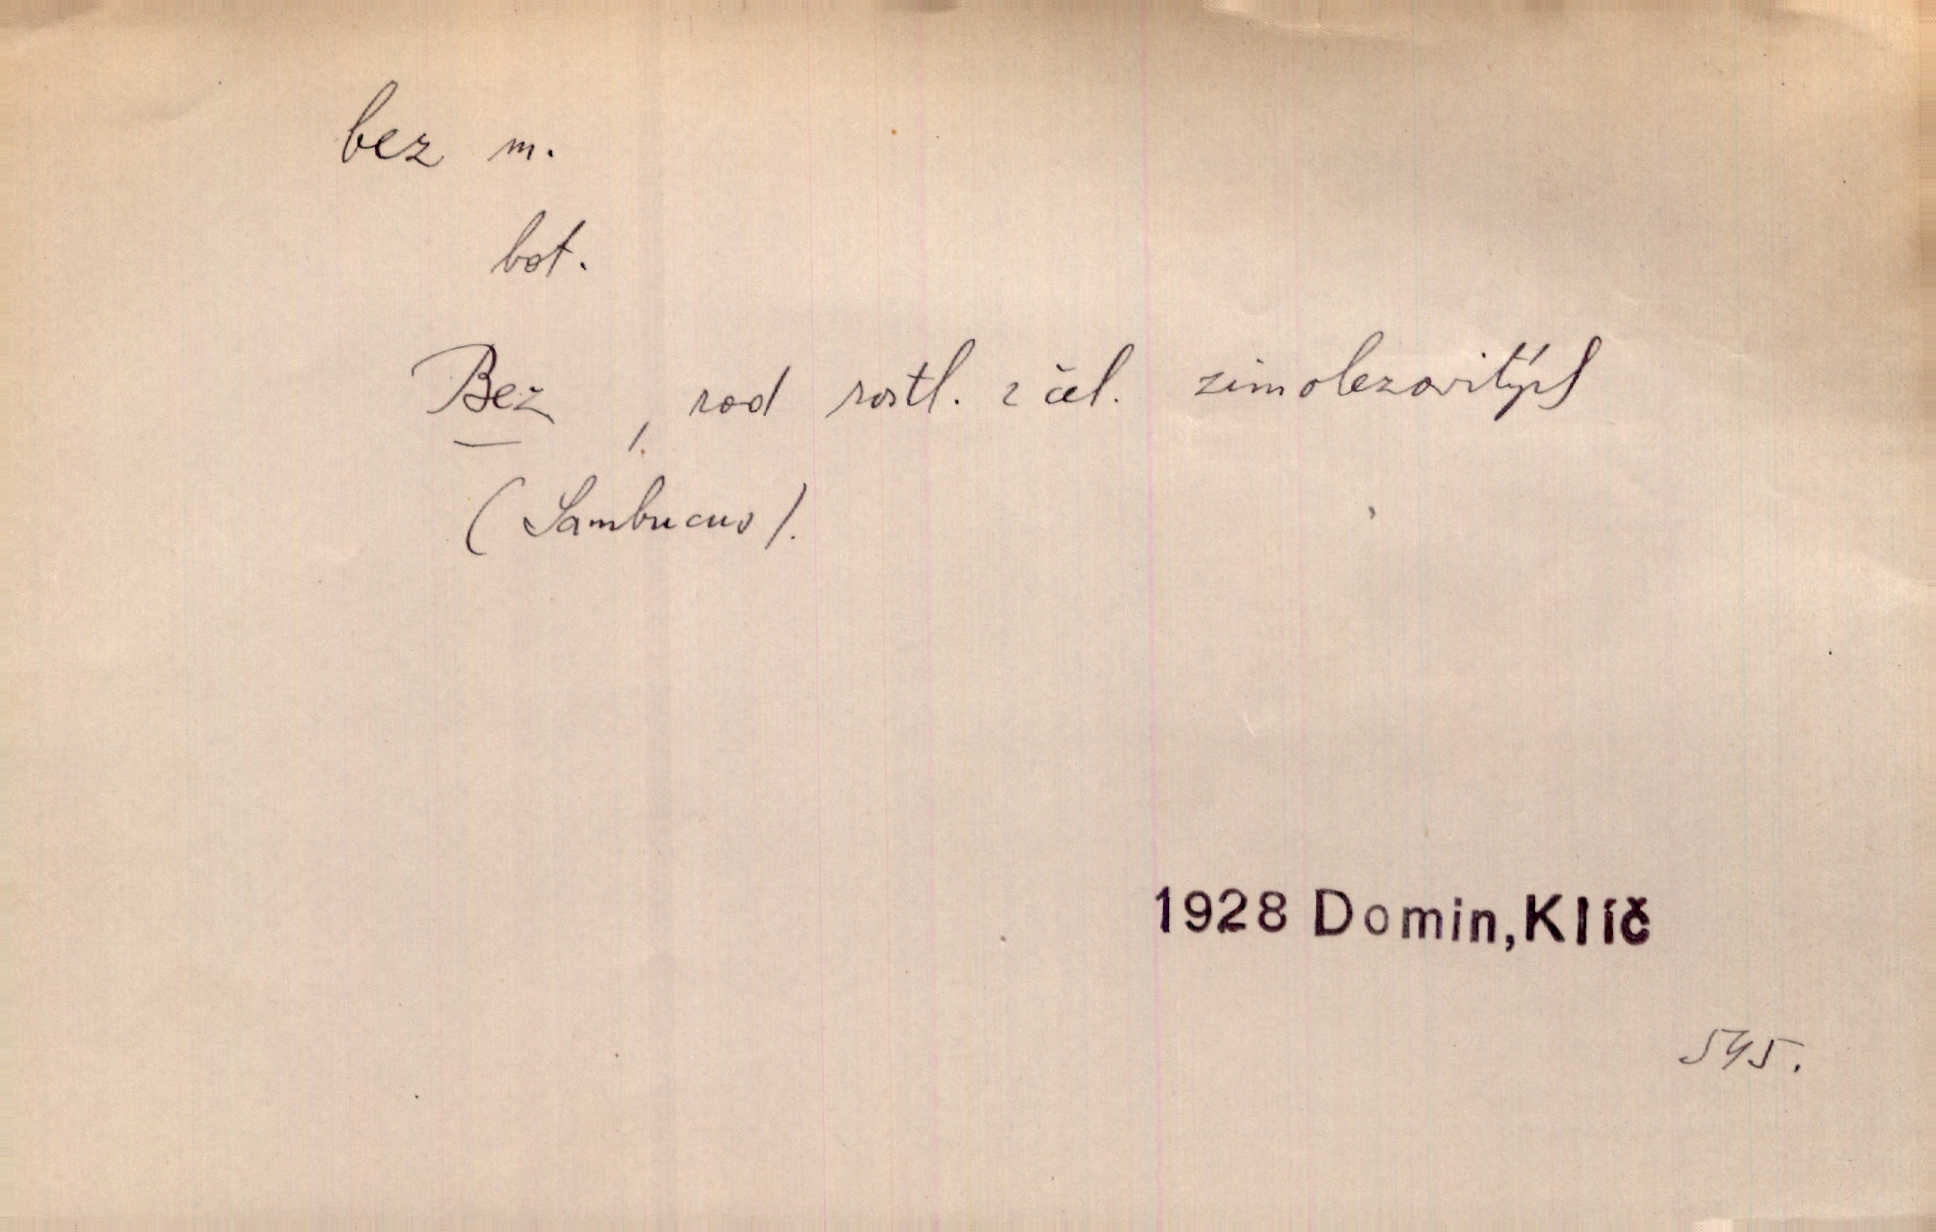 bez m.
bot.
Bez, rod rostl. z čel. zimolezovitých
(Sambucus).
1928 Domin, Klíč
545.